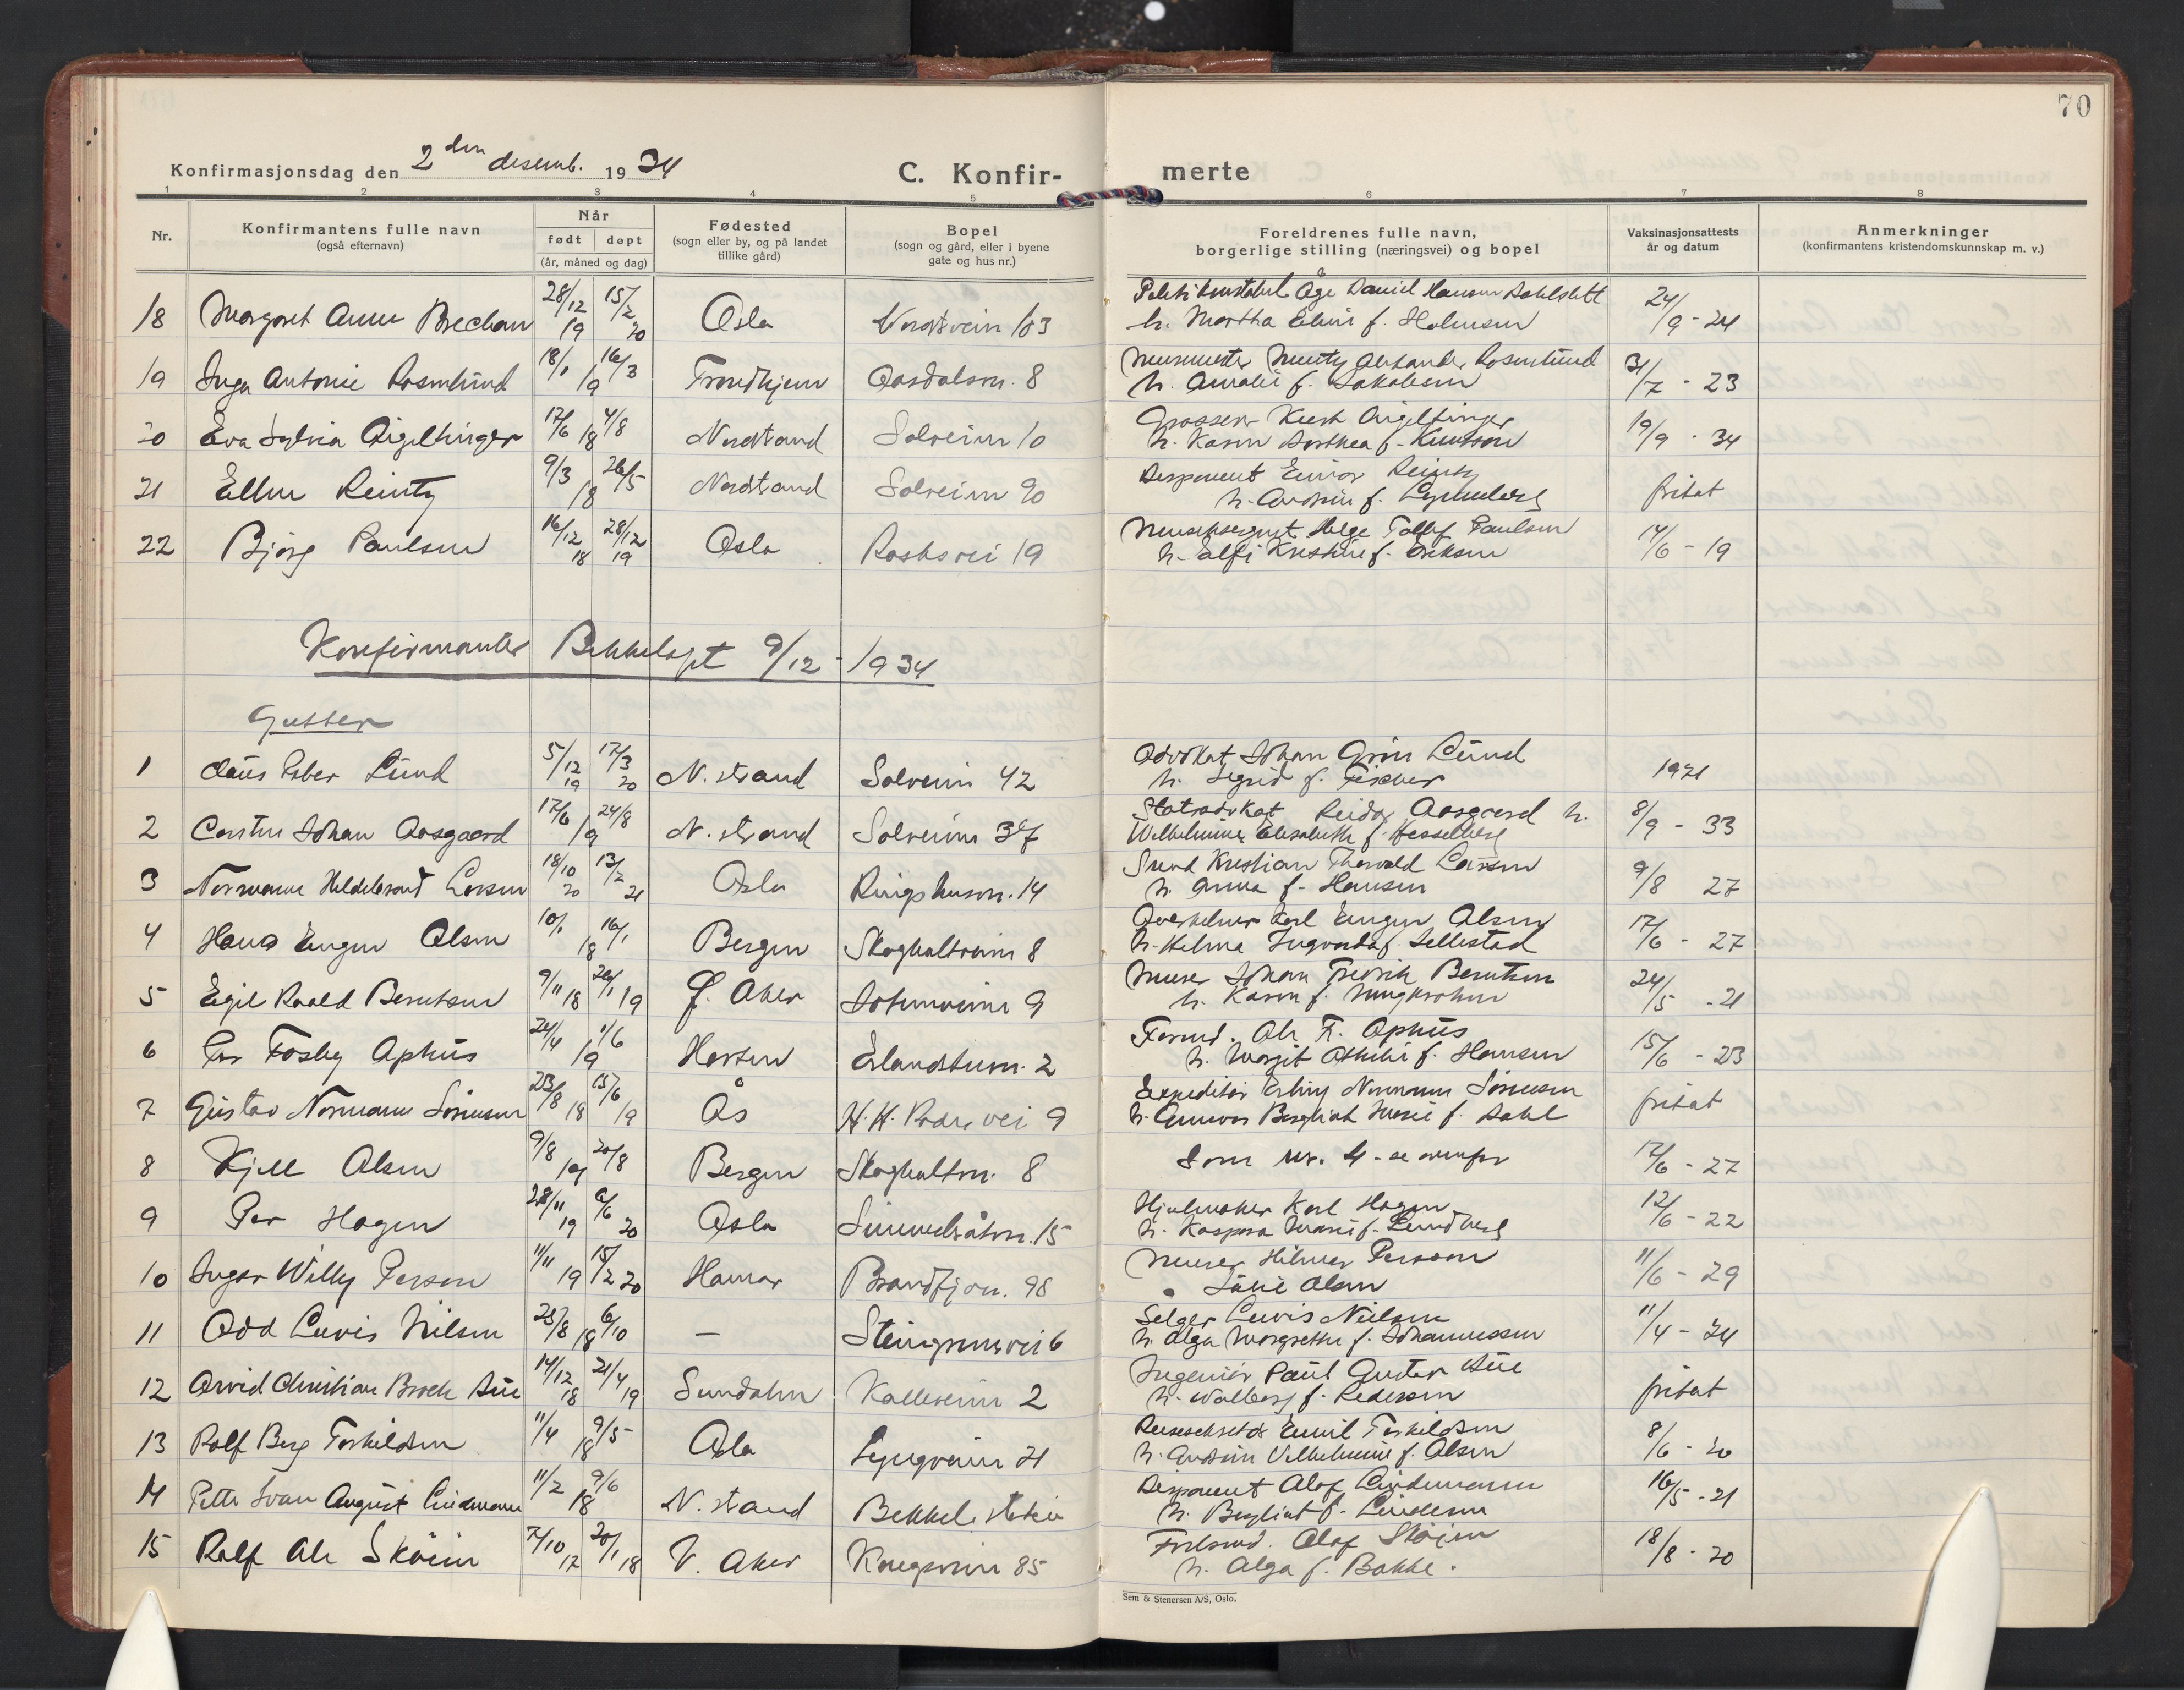 70
Konfirmasjonsdag den 2 den desemb. 1934 C. Konfir- merte
1 2 3 4 5 6 7 8
Nr. Konfirmantens fulle navn (også efternavn) Når født døpt (år, måned og dag) Fødested (sogn eller by, og på landet tillike gård) Bopel (sogn og gård, eller i byene gate og hus nr.) Foreldrenes fulle navn, borgerlige stilling (næringsvei) og bopel Vaksinasjonsattests år og datum Anmerkninger (konfirmantens kristendomskunnskap m. v.)
18 Margaret Anne Brechan 28/12 19 15/2 20 Oslo 103 Åge Daniel Hansen
h. Martha f. 24/9 - 24
19 Inga Antonie Rosenlund 18/1 16/3 19 Trondhjem 8 Murmester Rosenlund
h. Amalie f. Jakobsen 31/7 - 23
20 Eva Sylvia 17/6 4/8 18 Nordstrand Solveien 10 Grosser
h. Karen Dorthea f. Knutson 19/9 - 34
21 Ellen Reintz 9/3 26/5 18 Nordstrand Solveien 90 Disponent Einar Reintz
h. f. fritat
22 Bjørg Paulsen 16/12 18 28/12 19 Oslo vei 19 Helge Paulsen
h. Kristine f. Eriksen 14/6 - 19
Konfirmanter Bekkelaget 9/12 - 1934
Gutter
1 Claus Lund 5/12 19 17/3 20 N. strand Solveien 42 Advokat Johan Grøn Lund
h. Sigrid f. Fischer 1921
2 Carsten Johan Aasgaard 17/6 24/8 19 N. strand Solveien Statsadvokat Reidar Aasgaard h.
Wilhelmine Elisabeth f. Hesselberg 8/9 - 33
3 Normann Hildebrand Larsen 18/10 20 13/2 21 Oslo Ringshusvn. 14 Kristian Thorvald Larsen
h. Anna f. Hansen 9/8 27
4 Hans Eugen Olsen 10/1 16/1 18 Bergen Skogholtveien 8 Overkelner Karl Eugen Olsen
h. Helma Ingvarda f. Sellestad 17/6 - 27
5 Egil Roald Berntsen 9/11 18 26/1 19 Ø. Aker 9 Murer Johan Fredrik Berntsen
h. Karen f. 24/5 - 21
6 Per Fosby Ophus 24/4 1/6 19 Horten Erlandstuvn. 2 Formd. F. Ophus
h. Margit f. Hansen 15/6 - 23
7 Gustav Normann Sørensen 23/8 18 15/6 19 Ås H. H. vei 9 Expeditør Erling Normann Sørensen
h. Gunvor Bergliot Marie f. Dahl fritat
8 Kjell Olsen 9/8 19 20/8 Bergen Skogholtvn. 8 Som nr. 4 - se ovenfor 17/6 - 27
9 Per Hagen 28/11 19 6/6 20 Oslo Simensbråtvn. 15 Hjulmaker Karl Hagen
h. Kaspara Marie f. Lundberg 12/6 - 22
10 Inger Willy Person 11/11 19 15/2 20 Hamar Brandfjøvn. 98 Murer Hilmer Persson
Julie Olsen 11/6 - 29
11 Odd Lewis Nilsen 23/8 6/10 18 — 6 Selger Lewis Nielsen
h. Olga Margrethe f. Johannessen 11/4 - 24
12 Arvid Christian Broch Aue 14/12 18 21/4 19 Sundalen Kalleveien 2 Ingeniør Paul Gustav Aue
h. Walborg f. Pedersen fritat
13 Rolf Berg Torkildsen 11/4 9/5 18 Oslo Lyngveien 21 Emil Torkildsen
h. Vilhelmine f. Olsen 8/6 - 20
14 Petter Ivan August Lindemann 11/2 9/6 18 N. strand Bekkel. station Disponent Olof Lindemann
h. Bergliot f. Lindeman 16/5 - 21
15 Rolf Skøien 7/10 17 20/1 18 V. Aker Kongsveien 85 Olaf Skøien
h. Olga f. Bakke. 18/8 - 20
Sem & Stenersen A/S, Oslo.